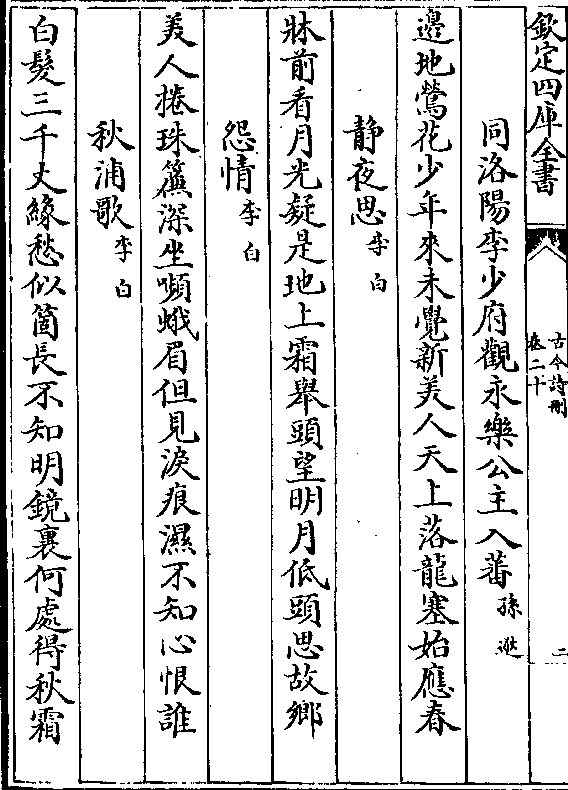 欽定四庫全書
古今詩刪
卷二十
二
同洛陽李少府觀永樂公主入蕃 孫逖
邊地鶯花少年來未覺新美人天上落龍塞始應春
静夜思 李白
牀前看月光疑是地上霜舉頭望明月低頭思故鄉
怨情 李白
美人捲珠簾深坐嚬蛾眉但見淚痕濕不知心恨誰
秋浦歌 李白
白髮三千丈緣愁似箇長不知明鏡裏何處得秋霜